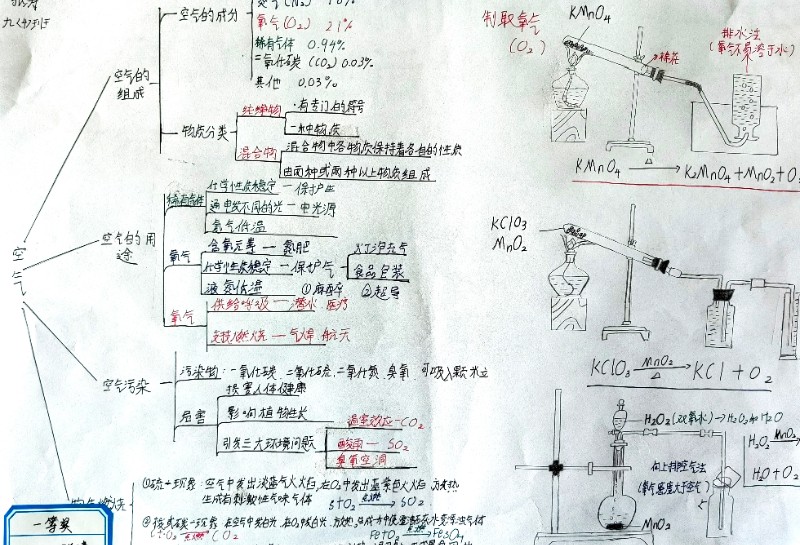 九(4)班
空气
空气的组成
空气的成分
氮气(N₂) 78%
氧气(O₂) 21%
稀有气体 0.94%
二氧化碳(CO₂) 0.03%
其他 0.03%
物质分类
纯净物
有专门的符号
一种物质
混合物
混合物中各物质保持着各自的性质
由两种或两种以上物质组成
空气的用途
稀有气体
化学性质稳定—保护气
通电发不同的光—电光源
氦气低温
氮气
含氮元素—氮肥
化学性质稳定—保护气
灯泡充气
食品包装
液氮低温
①麻醉
②超导
氧气
供给呼吸—潜水 医疗
支持燃烧—气焊 航天
空气污染
污染物:一氧化碳、二氧化硫、二氧化氮、臭氧、可吸入颗粒
危害
损害人体健康
影响植物生长
引发三大环境问题
温室效应—CO₂
酸雨—SO₂
臭氧空洞
①硫+现象:空气中发出淡蓝色火焰,在O₂中发出蓝紫色火焰 放热
生成有刺激性气味气体 S+O₂ 点燃 SO₂
CO₂
一等奖
制取氧气
(O₂)
KMnO₄
棉花
排水法
(氧气不易溶于水)
KMnO₄ △ K₂MnO₄+MnO₂+O₂
KClO₃
MnO₂
KClO₃ MnO₂ △ KCl+O₂
H₂O₂(双氧水)→H₂O₂和H₂O
H₂O₂ MnO₂
H₂O+O₂
向上排空气法
(氧气密度大于空气)
MnO₂